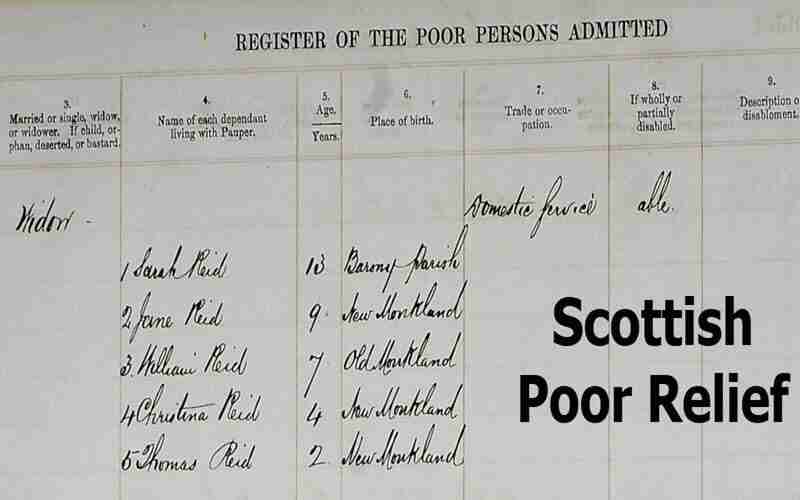 REGISTER OF THE POOR PERSONS ADMITTED
3.
Married or single, widow,
or widower. If child, or-
phan, deserted, or bastard.
4.
Name of each dependant
living with Pauper.
5.
Age.
Years.
6.
Place of birth.
7.
Trade or occu-
pation.
8.
If wholly or
partially
disabled.
9.
Description o
disablement.
Widow - Domestic Service able.
1 Sarah Reid 13 Barony Parish
2 Jane Reid 9 New Monkland
3 William Reid 7 Old Monkland
4 Christina Reid 4 New Monkland
5 Thomas Reid 2 New Monkland
Scottish
Poor Relief